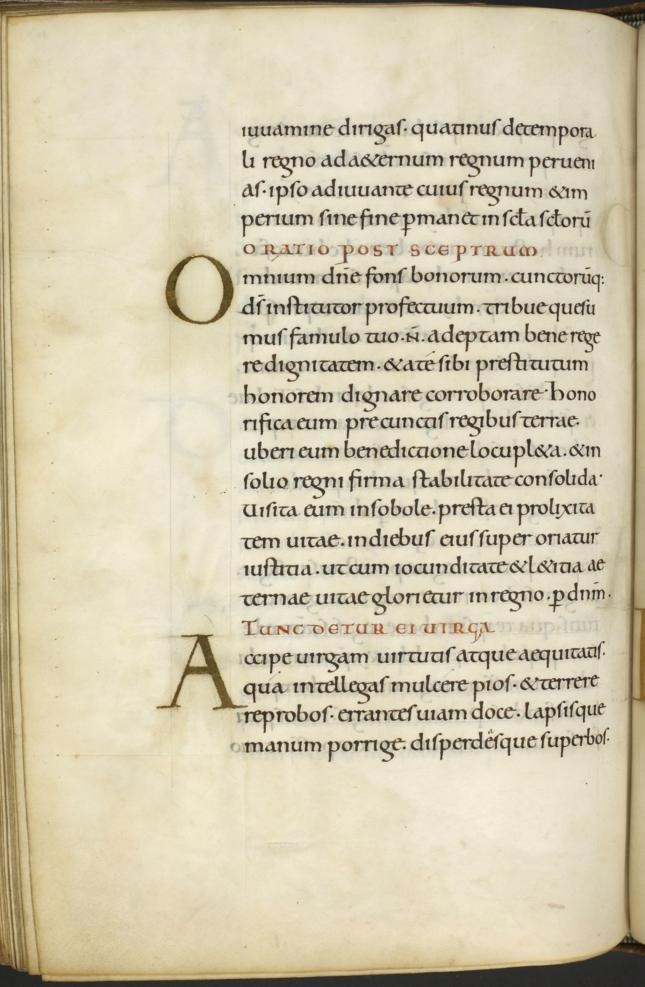 iuuamine dirigas· quatinus detempora
li regno ada&ernum regnum perueni
as· ipso adiuuante cuius regnum &im
perium sine fine ꝑmanet in scła scłorū
ORATIO POST SCEPTRUM
Omnium dn̄e fons bonorum· cunctorūq:
ds̄ institutor profectuum· tribue quesu
mus famulo tuo·N̄· adeptam bene rege
re dignitatem· &ate sibi prestitutum
honorem dignare corroborare· hono
rifica eum precunctis regibus terrae·
uberi eum benedictione locupl&a· &in
solio regni firma stabilitate consolida·
Uisita eum insobole· presta ei prolixita
tem uitae· indiebus eius super oriatur
iustitia· ut cum iocunditate &l&itia ae
ternae uitae glorietur in regno· ꝑ dnm̄·
TUNC DETUR EI UIRGA
Accipe uirgam uirtutis atque aequitatis·
qua intellegas mulcere pios· &terrere
reprobos· errantes uiam doce· lapsisque
manum porrige· disperdesque superbos·